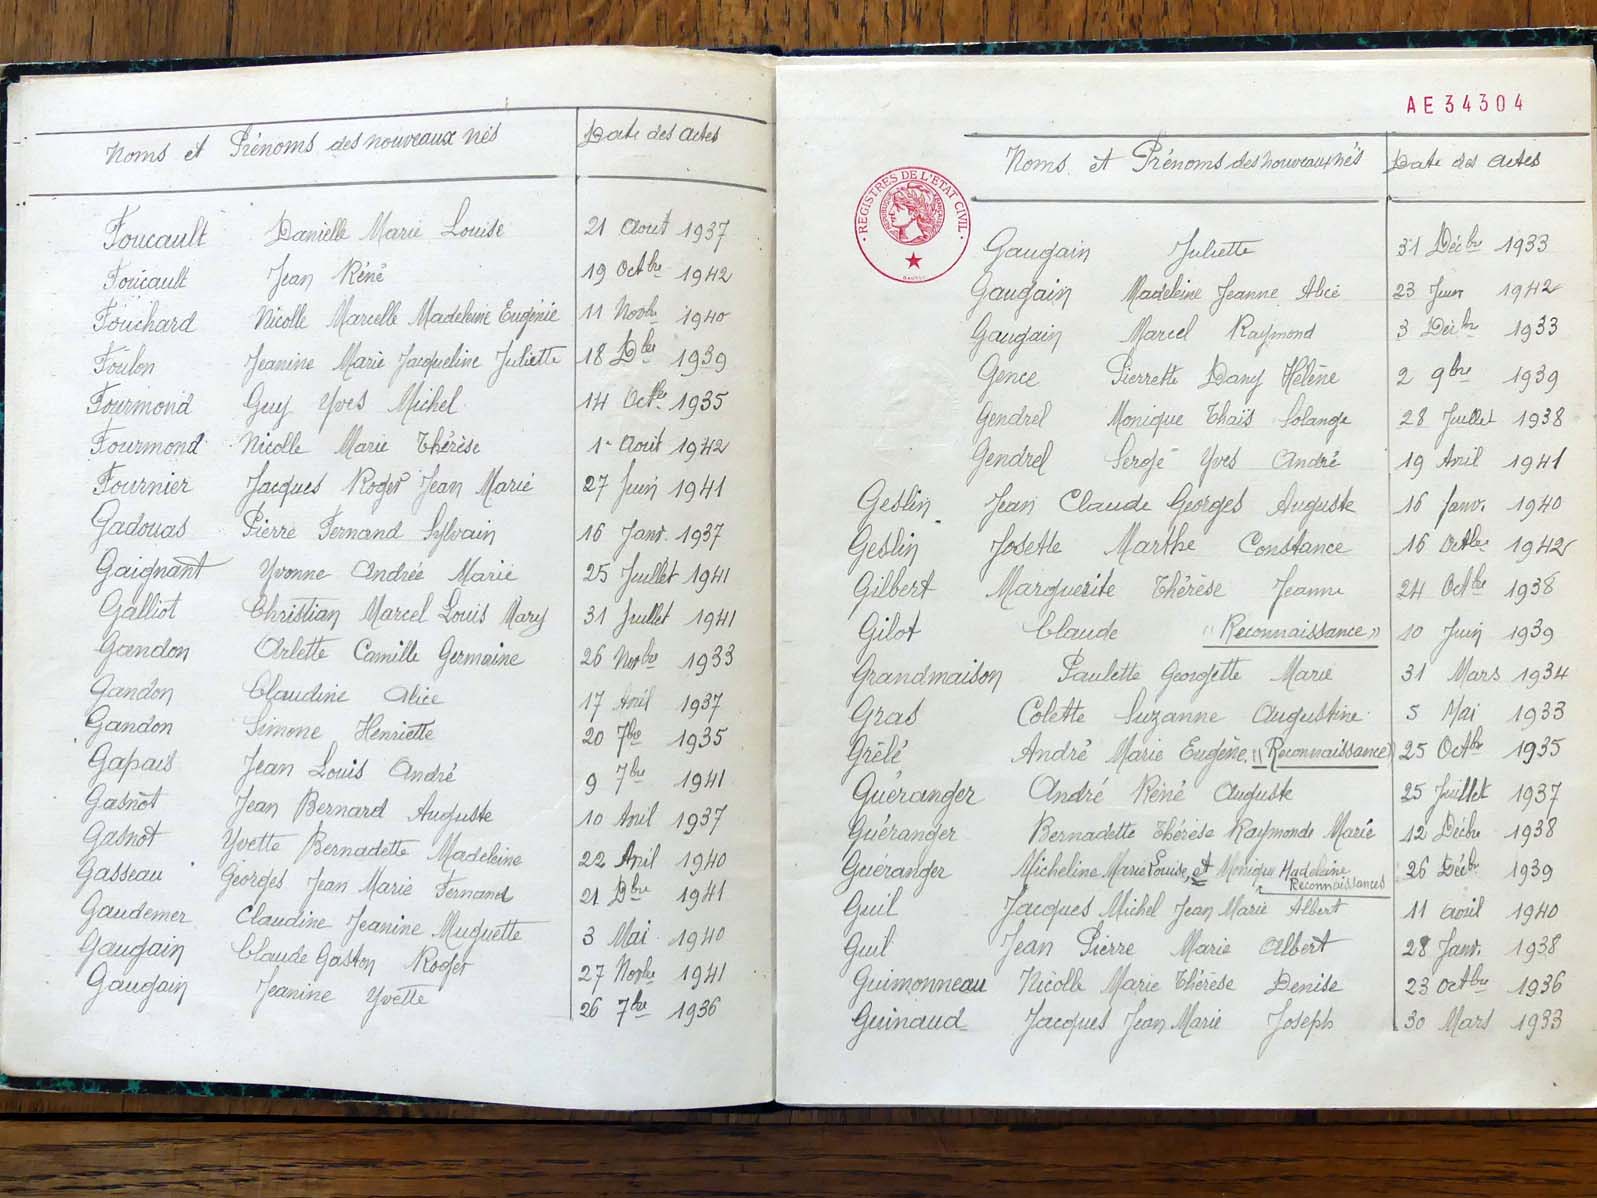 Noms et Prénoms des nouveaux nés Date des actes
Foucault Danielle Marie Louise 21 Aout 1937
Foucault Jean Réné 19 Octbre 1942
Fouchard Nicolle Marcelle Madeleine Eugénie 11 Novbre 1940
Foulon Jeanine Marie Jacqueline Juliette 18 Dbre 1939
Fourmond Guy Yves Michel 14 Octbre 1935
Fourmond Nicolle Marie Thérèse 1er Aout 1942
Fournier Jacques Roger Jean Marie 27 Juin 1941
Gadouas Pierre Fernand Sylvain 16 Janv. 1937
Gaignant Yvonne Andrée Marie 25 Juillet 1941
Galliot Christian Marcel Louis Mary 31 Juillet 1941
Gandon Arlette Camille Germaine 26 Novbre 1933
Gandon Claudine Alice 17 Avril 1937
Gandon Simone Henriette 20 7bre 1935
Gapais Jean Louis André 9 7bre 1941
Gasnot Jean Bernard Auguste 10 Avril 1937
Gasnot Yvette Bernadette Madeleine 22 Avril 1940
Gasseau Georges Jean Marie Fernand 21 Dbre 1941
Gaudemer Claudine Jeanine Muguette 3 Mai 1940
Gaugain Claude Gaston Roger 27 Novbre 1941
Gaugain Jeanine Yvette 26 7bre 1936
AE34304
REGISTRES DE L'ETAT CIVIL
REPUBLIQUE FRANÇAISE
Noms et Prénoms des nouveaux nés Date des actes
Gaugain Juliette 31 Décbre 1933
Gaugain Madeleine Jeanne Alice 23 Juin 1942
Gaugain Marcel Raymond 3 Décbre 1933
Gence Pierrette Dany Hélène 2 9bre 1939
Gendrel Monique Thaïs Solange 28 Juillet 1938
Gendrel Serge Yves André 19 Avril 1941
Geslin Jean Claude Georges Auguste 16 Janv. 1940
Geslin Josette Marthe Constance 16 Octbre 1942
Gilbert Marguerite Thérèse Jeanne 24 Octbre 1938
Gilot Claude "Reconnaissance" 10 Juin 1939
Grandmaison Paulette Georgette Marie 31 Mars 1934
Gras Colette Suzanne Augustine 5 Mai 1933
Grêlé André Marie Eugène "Reconnaissance" 25 Octbre 1935
Guéranger André Réné Auguste 25 Juillet 1937
Guéranger Bernadette Thérèse Raymonde Marie 12 Décbre 1938
Guéranger Micheline Marie Louise, et Monique Madeleine 26 Décbre 1939
Reconnaissances
Guil Jacques Michel Jean Marie Albert 11 Avril 1940
Guil Jean Pierre Marie Albert 28 Janv. 1938
Guimonneau Nicolle Marie Thérèse Denise 23 Octbre 1936
Guinaud Jacques Jean Marie Joseph 30 Mars 1933